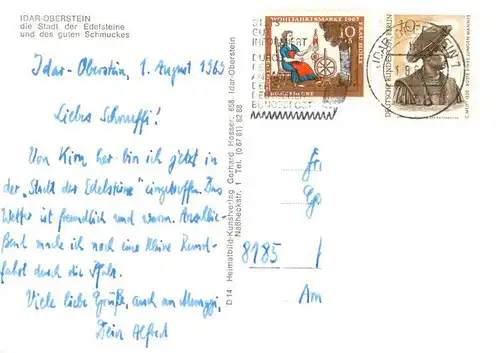 IDAR-OBERSTEIN
die Stadt der Edelsteine
und des guten Schmuckes
Idar-Oberstein, 1. August 1969
Liebes Schnuffi!
Von Kirn her bin ich jetzt in
der „Stadt der Edelsteine" eingetroffen. Das
Wetter ist freundlich und warm. Anschlie-
ßend mache ich noch eine kleine Rund-
fahrt durch die Pfalz.
Viele liebe Grüße, auch an
Dein Alfred
D 14 Heimatbild-Kunstverlag Gerhard Hosser, 658 Idar-Oberstein
Naßheckstr. 1 Tel. (0 67 81) 82 88
WOHLFAHRTSMARKE 1967
FRAU HOLLE
10
DEUTSCHE BUNDESPOST
INFORMIERT
DURCH
BUNDESPOST
10
DEUTSCHE BUNDESPOST BERLIN
Fr
Ge
8185
Am